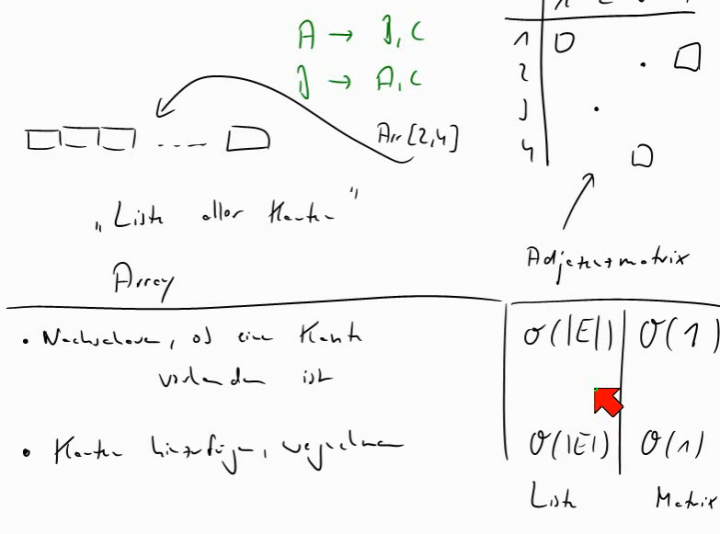 A → B, C
B → A, C
1
2
3
4
Arr[2,4]
„Liste aller Kanten"
Array
Adjazenzmatrix
• Nachschauen, ob eine Kante
vorhanden ist
O(|E|) O(1)
• Kanten hinzufügen, wegnehmen
O(|E|) O(1)
Liste Matrix